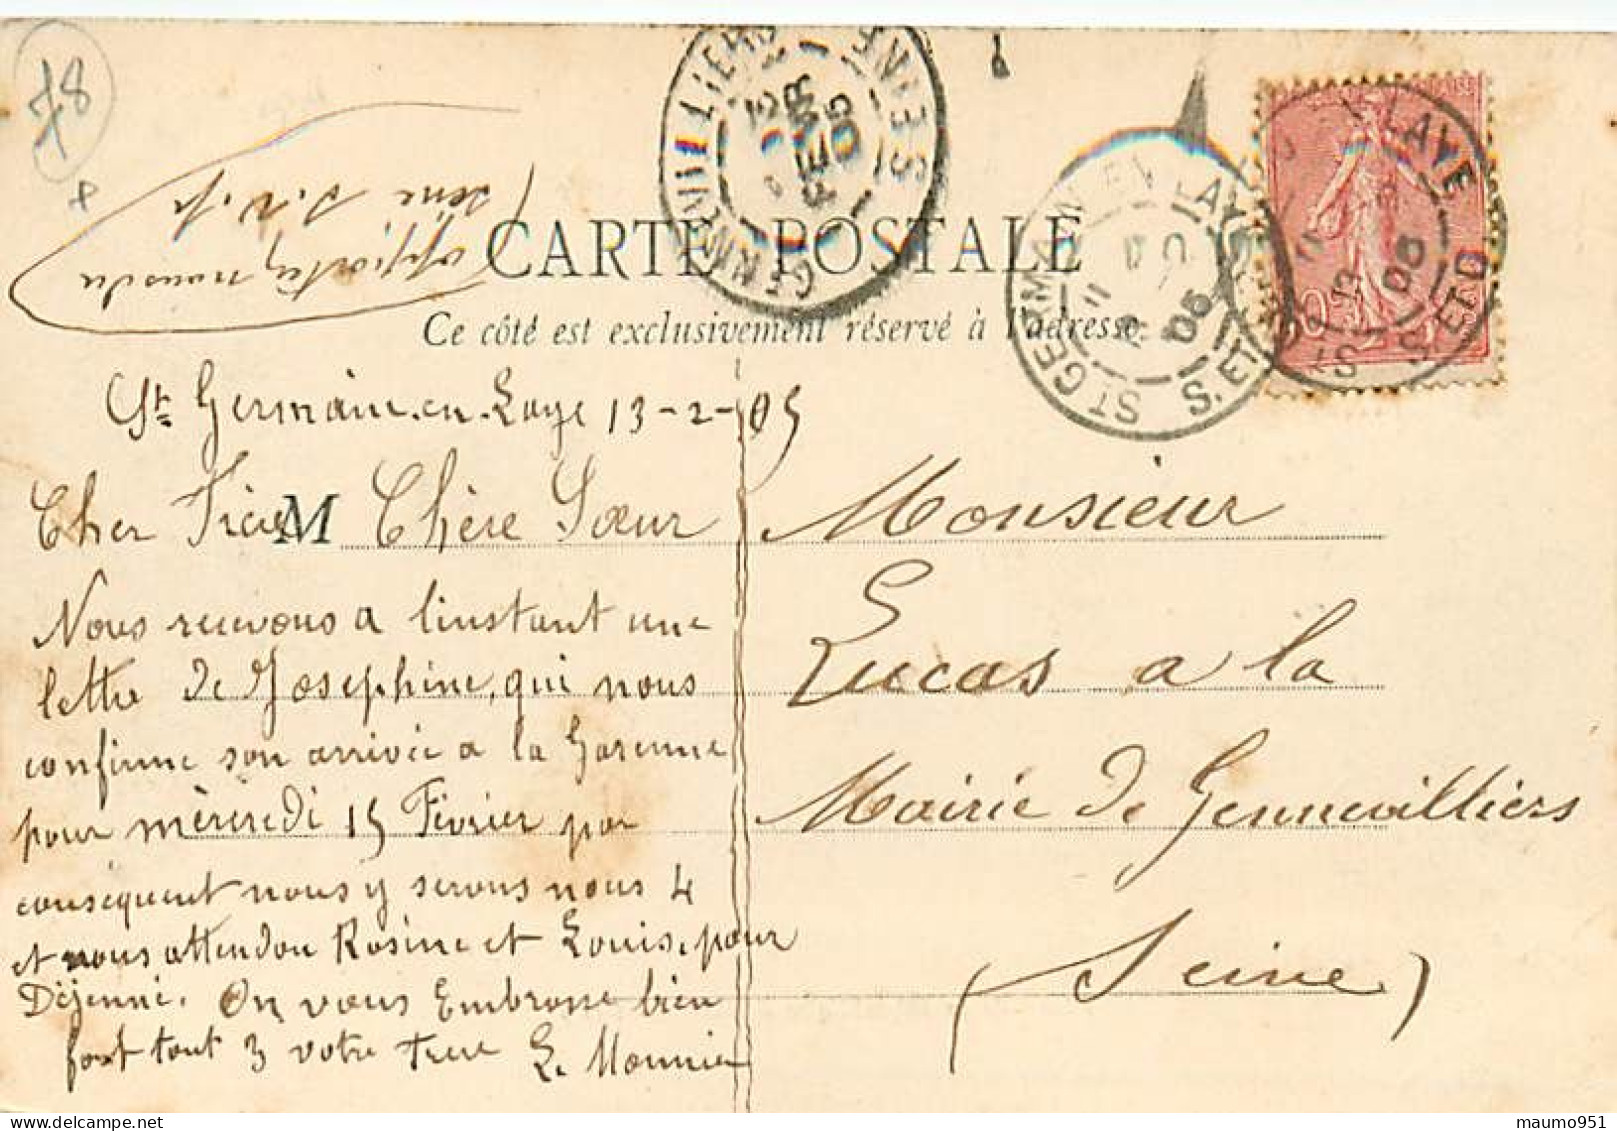 78
apportez nous du
CARTE POSTALE
Ce côté est exclusivement réservé à l'adresse
GENNEVILLIERS SEINE
FEVR 05
ST GERMAIN EN LAYE S. ET O.
05
LAYE S. ET O.
13
05
St Germain-en-Laye 13-2-05
Cher Frère M Chère Sœur
Nous recevons a l'instant une
lettre de Josephine, qui nous
confirme son arrivée a la Garenne
pour mèrcredi 15 Février par
conséquent nous y serons nous 4
et nous attendon Rosine et Louis, pour
Déjenné. On vous Embrasse bien
fort tout 3 votre Frere L. Monnier
Monsieur
Lucas a la
Mairie de Gennevilliers
(Seine)
maumo951